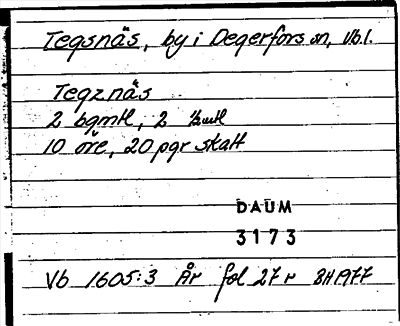 Tegsnäs, by i Degerfors sn, Vb l.
Tegznäs
2 bgmtl, 2 ½mtl
10 öre, 20 pgr skatt
DAUM
3173
Vb 1605:3 År fol 27 r BH 1977